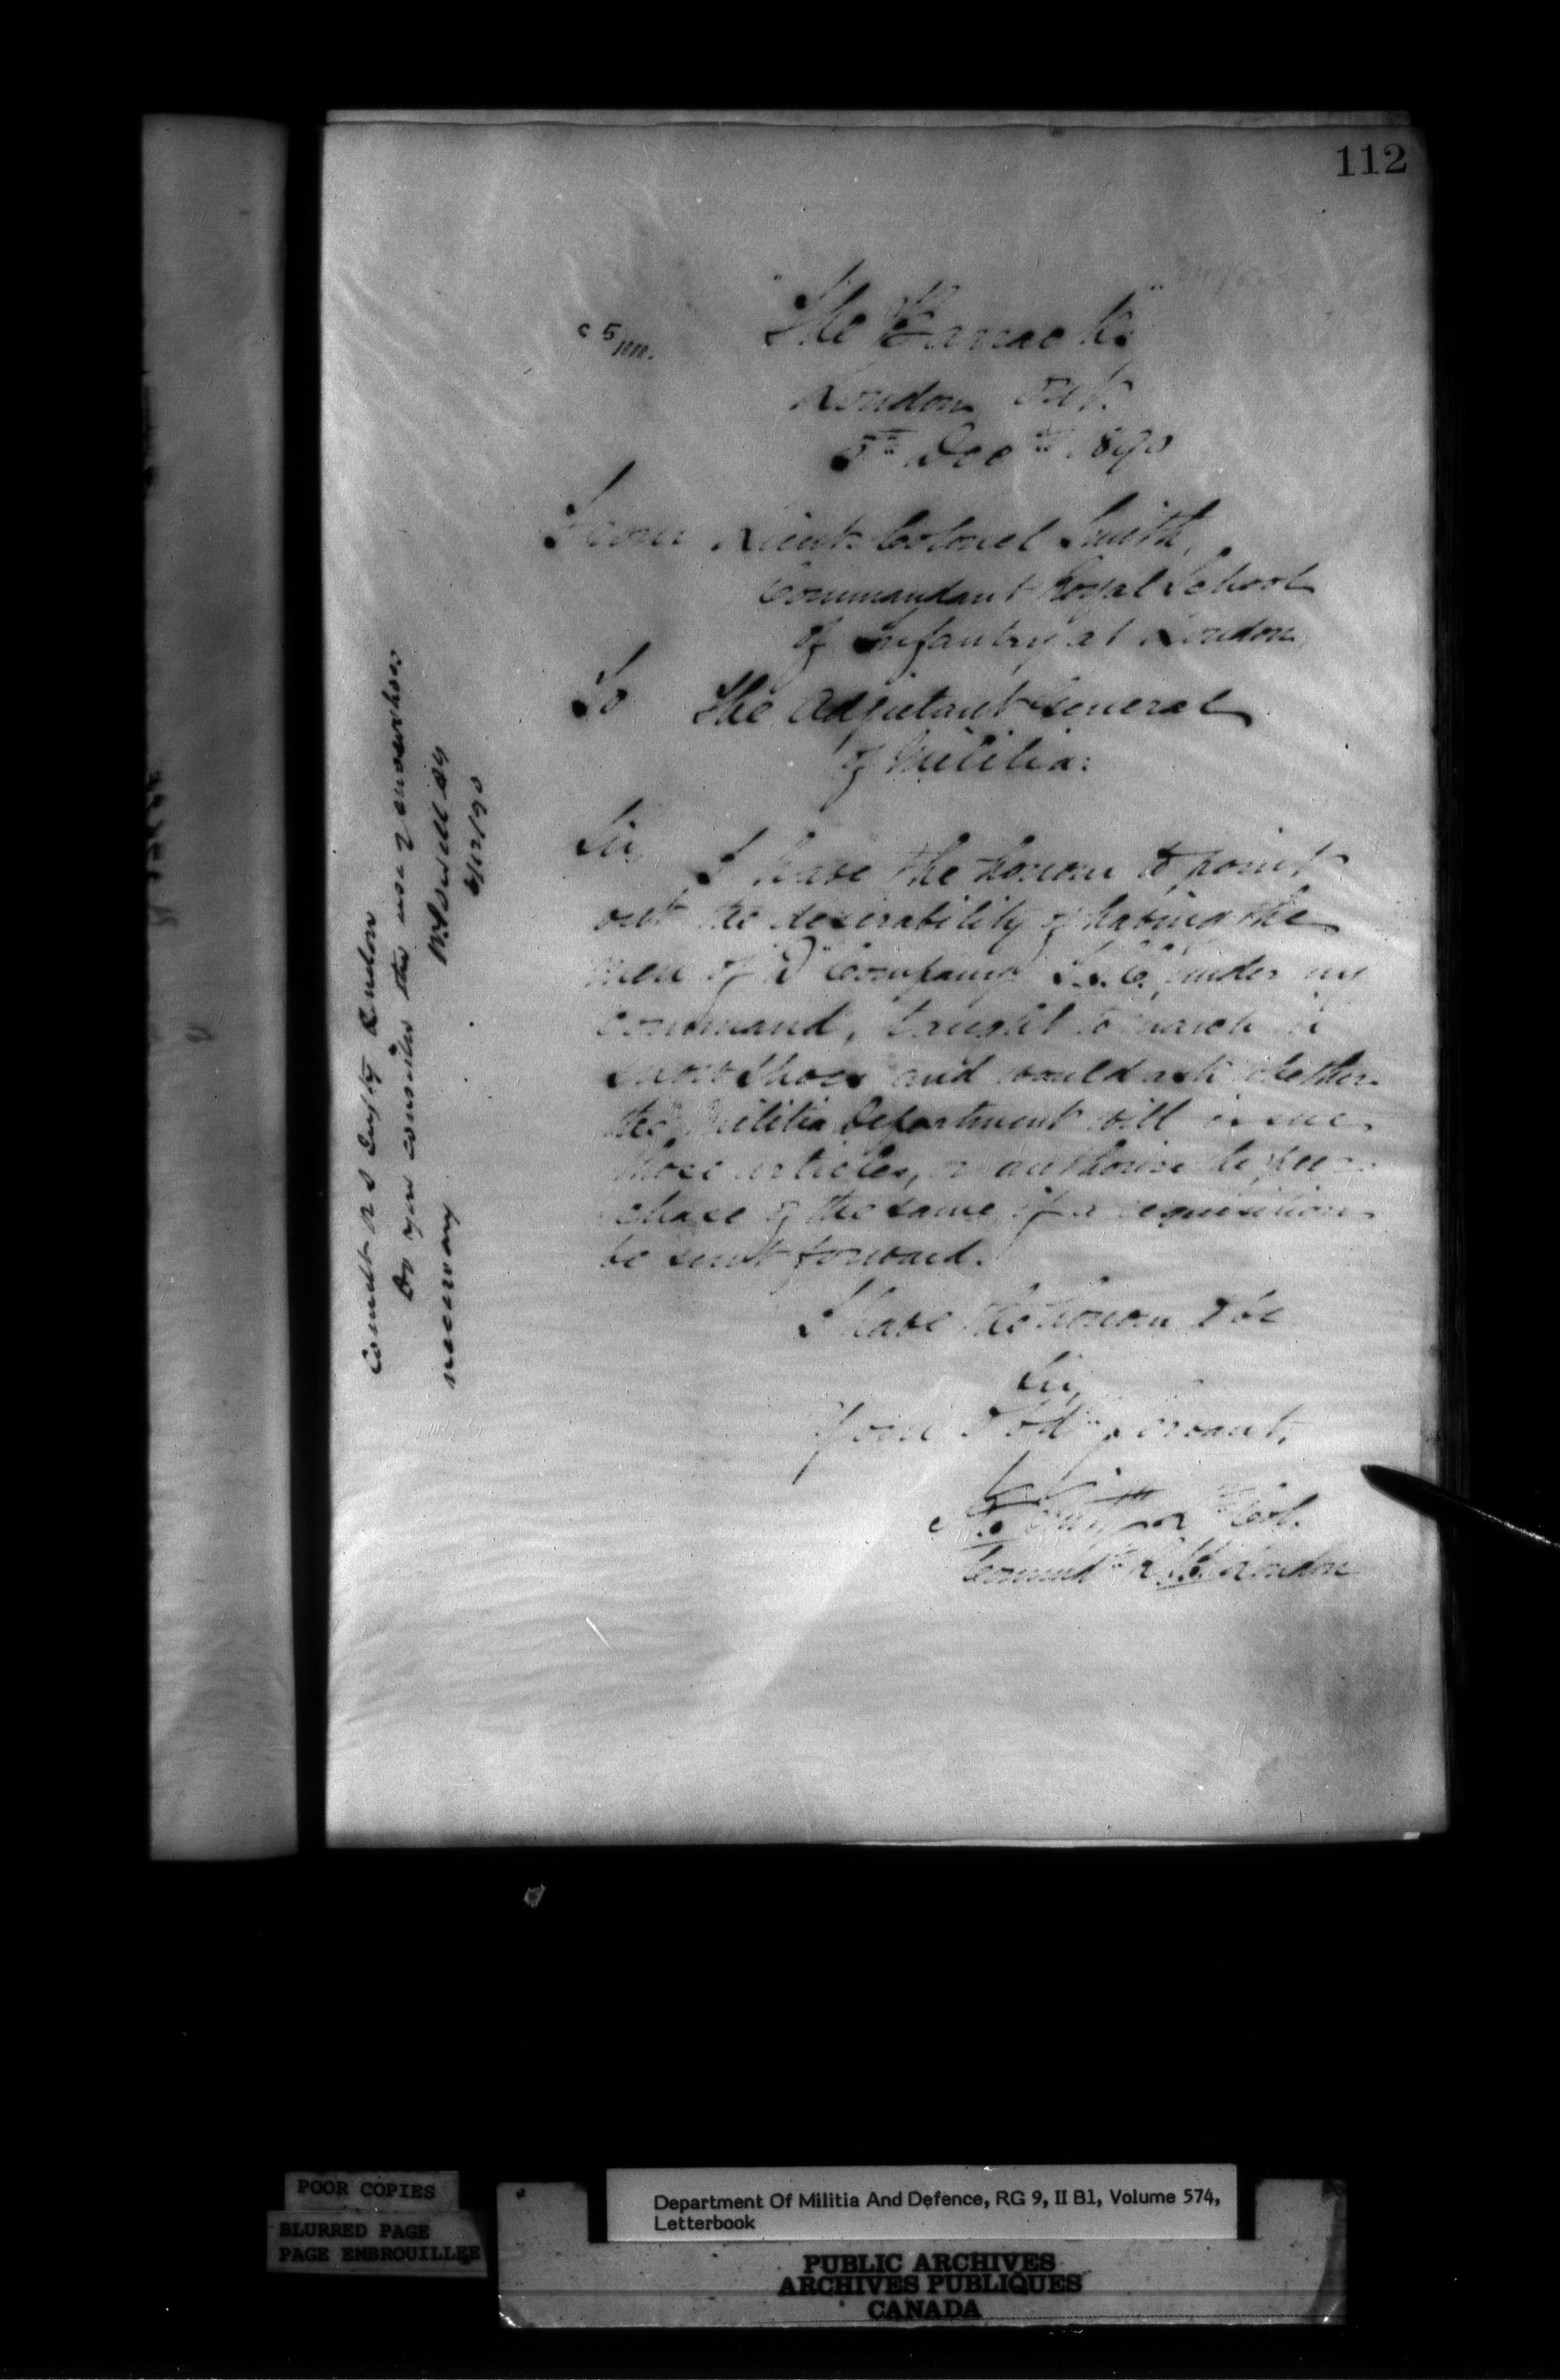 112
c 5/111.
"The Barracks"
London Ont.
5th Decr 1890
From Lieut. Colonel Smith,
Commandant Royal School
of Infantry at London
To The Adjutant General
of Militia:
Sir,
I have the honour to point
out the desirability of having the
men of "D" Company I.S.C. under my
command, taught to march in
snow shoes and would ask whether
the Militia Department will issue
those articles, or authorise the pur-
chase of the same if a requisition
be sent forward.
I have the honour to be
Sir,
Your Obdt servant,
Smith Lt Col.
Commdt R.S.I. London
Comdt R S Infty London
Do you consider the use of snowshoes
necessary
W. Powell AG
6/12/90
POOR COPIES
BLURRED PAGE
PAGE EMBROUILLEE
Department Of Militia And Defence, RG 9, II B1, Volume 574,
Letterbook
PUBLIC ARCHIVES
ARCHIVES PUBLIQUES
CANADA